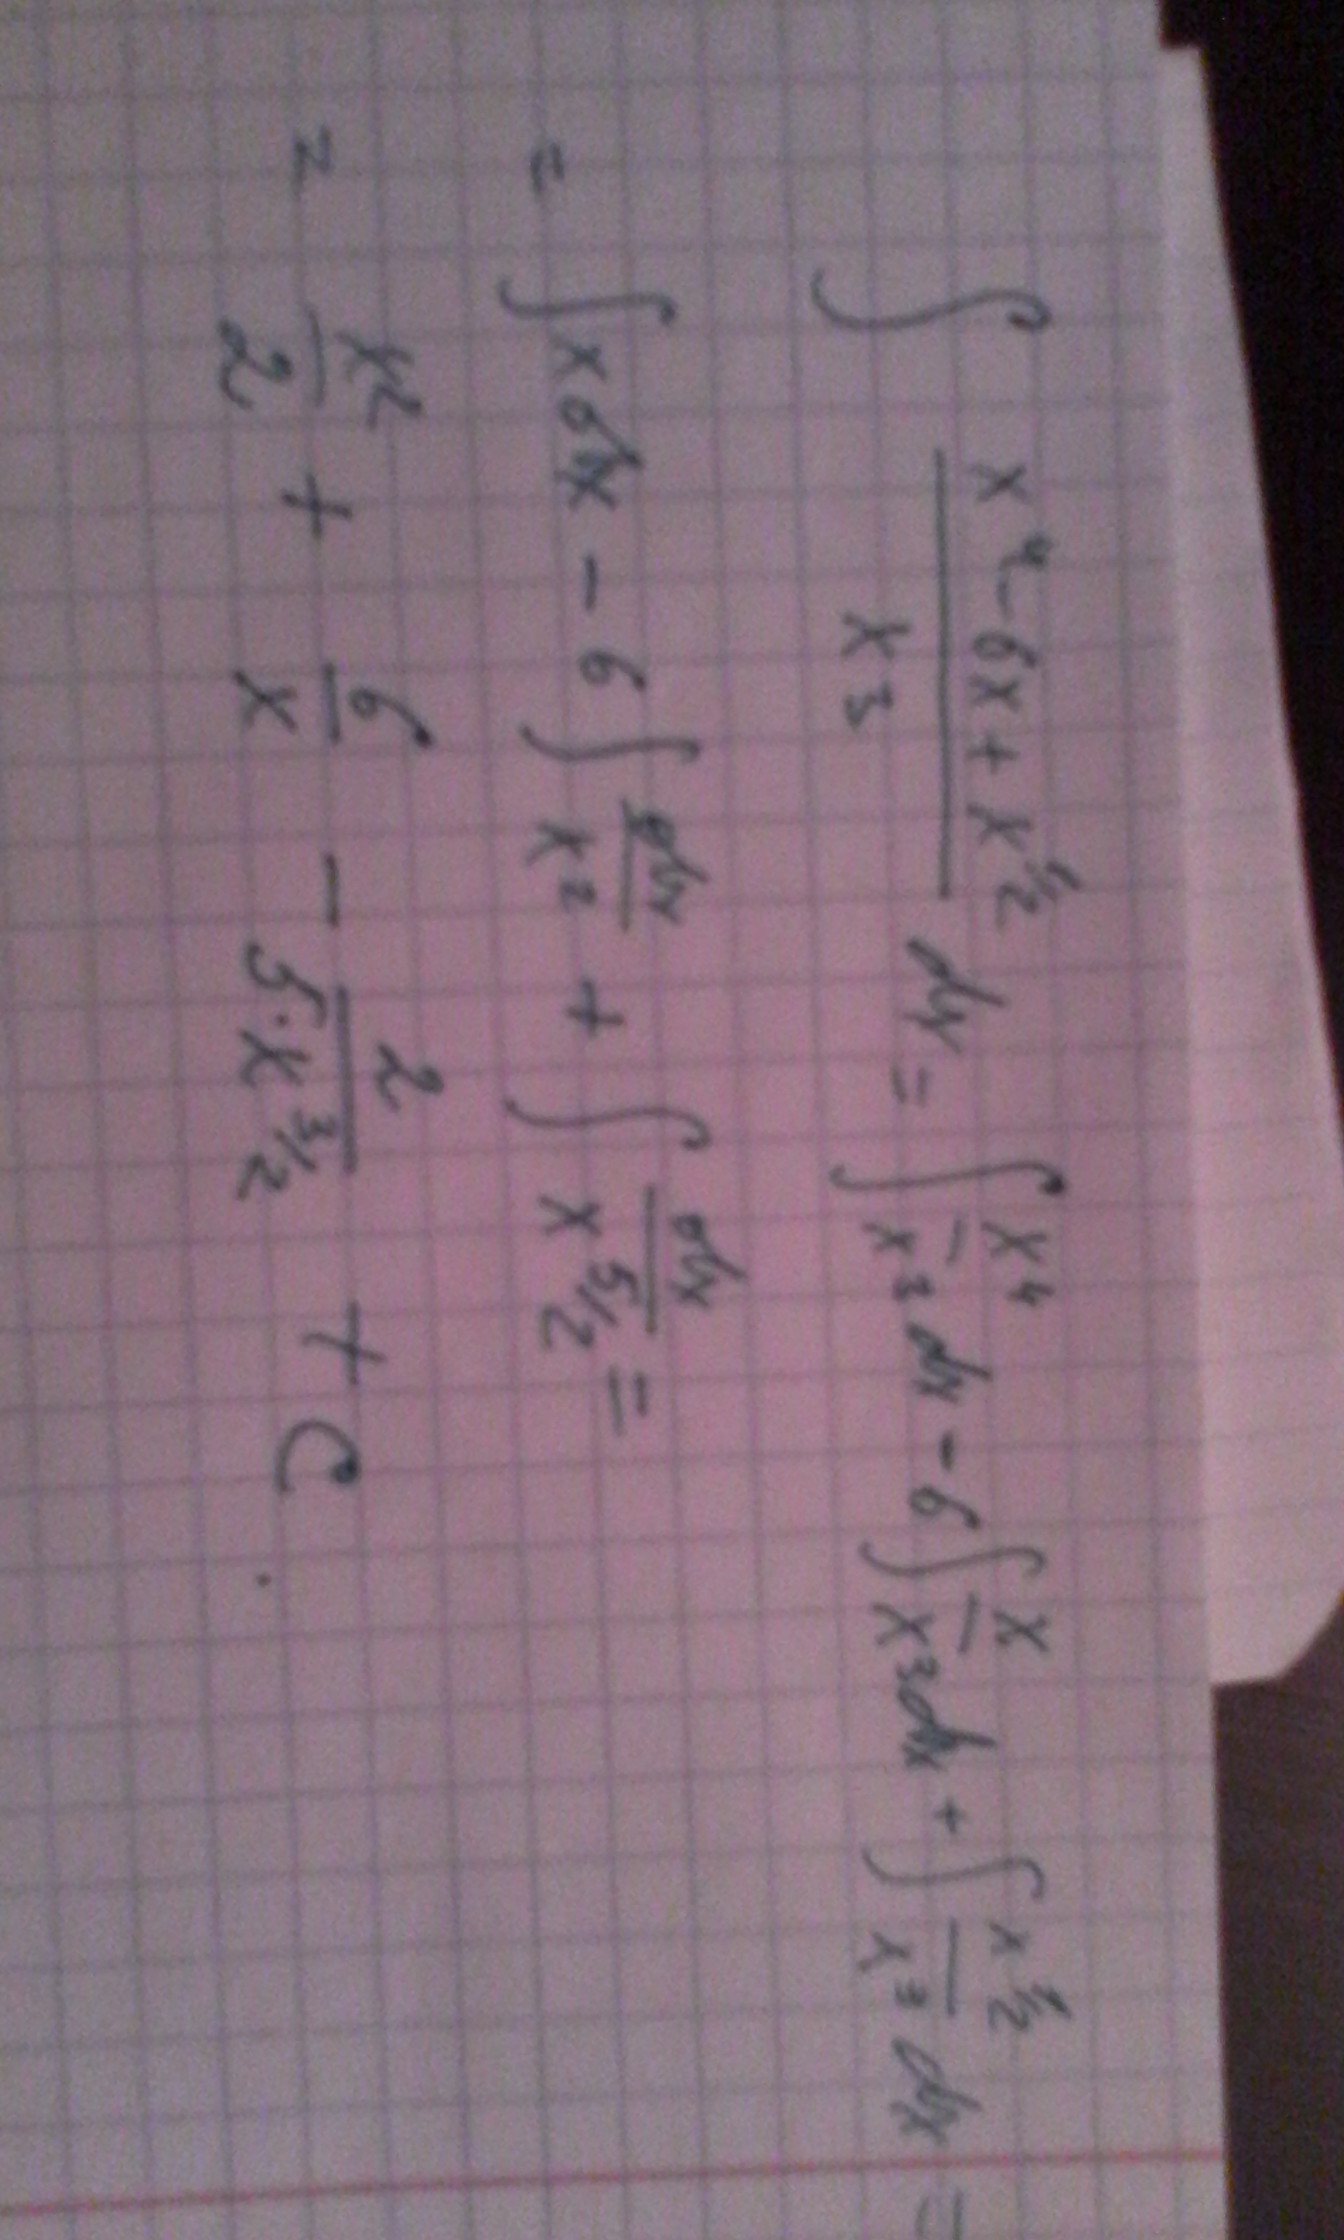 ∫ (x⁴ - 6x + x^(1/2)) / x³ dx = ∫ x⁴/x³ dx - 6 ∫ x/x³ dx + ∫ x^(1/2)/x³ dx =
= ∫ x dx - 6 ∫ dx/x² + ∫ dx/x^(5/2) =
= x²/2 + 6/x - 2/(5·x^(3/2)) + C